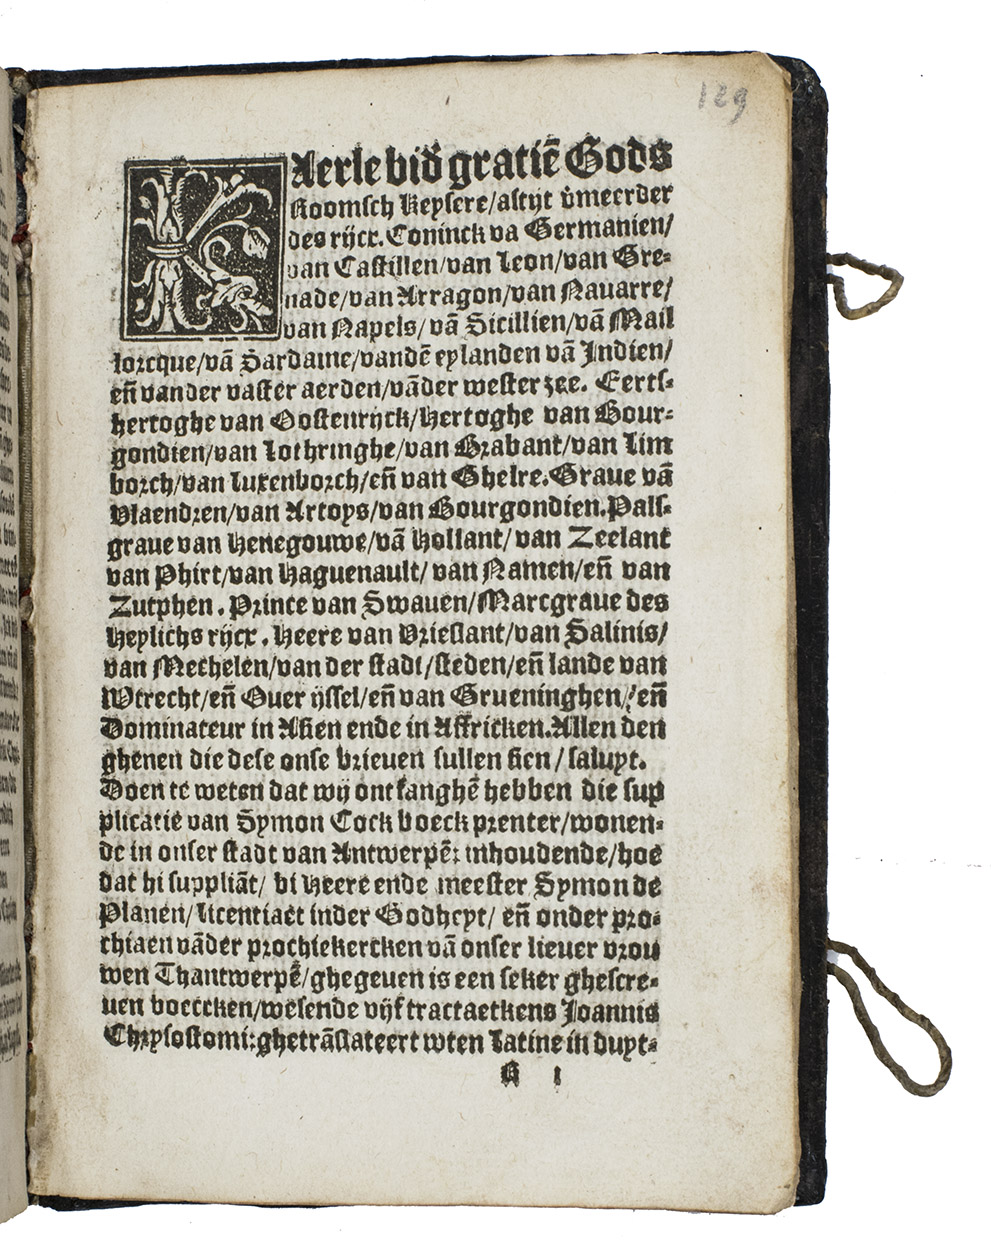 129
KAerle bid̄ gratiē Gods
Roomsch Keysere/altijt v̄meerder
des rijcx. Coninck vā Germanien/
van Castillen/van Leon/van Gre-
nade/van Arragon/van Nauarre/
van Napels/vā Sicillien/vā Mail
lorcque/vā Sardaine/vandē eylanden vā Indien/
eñ vander vaster aerden/vāder wester zee. Eerts-
hertoghe van Oostenrijck/Hertoghe van Bour-
gondien/van Lothringhe/van Brabant/van Lim
borch/van Luxenborch/eñ van Ghelre. Graue vā
Vlaendren/van Artoys/van Bourgondien. Pals-
graue van Henegouwe/vā Hollant/van Zeelant
van Phirt/van Haguenault/van Namen/eñ van
Zutphen. Prince van Swauen/Marcgraue des
Heylichs rijcx. Heere van Vrieslant/van Salinis/
van Mechelen/van der stadt/steden/eñ lande van
Wtrecht/eñ Ouer ijssel/eñ van Grueninghen/eñ
Dominateur in Asien ende in Affricken. Allen den
ghenen die dese onse brieuen sullen sien/saluyt.
Doen te weten dat wij ontfanghē hebben die sup
plicatie van Symon Cock boeck prenter/wonen-
de in onser stadt van Antwerpē: inhoudende/hoe
dat hi suppliāt/ bi Heere ende meester Symon de
Planen/licentiaet inder Godheyt/ eñ onder pro-
chiaen vāder prochiekercken vā onser lieuer vrou
wen Thantwerpē/ghegeuen is een seker ghescre-
uen boecxken/wesende vijf tractaetkens Joannis
Chrysostomi:ghetrāslateert wten Latine in duyt-
R 1